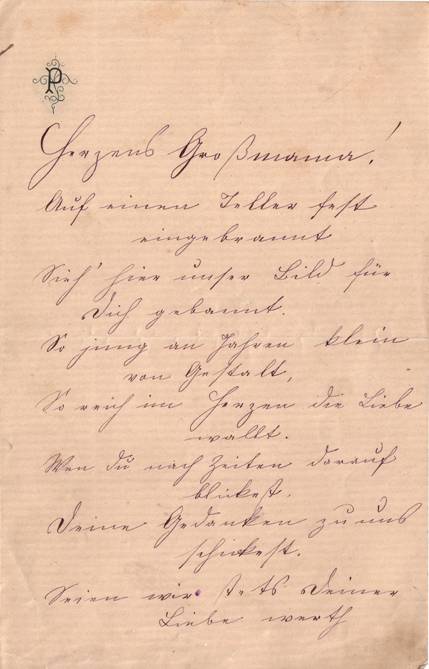 R
Herzens Großmama!
Auf einen Teller fest
eingebrannt
Sieh' hier unser Bild für
Dich gebannt.
So jung an Jahren klein
von Gestalt,
So reich im Herzen die Liebe
wallt.
Wen du nach Zeiten darauf
blickest.
Deine Gedanken zu uns
schickest.
Seien wir stets Deiner
Liebe werth